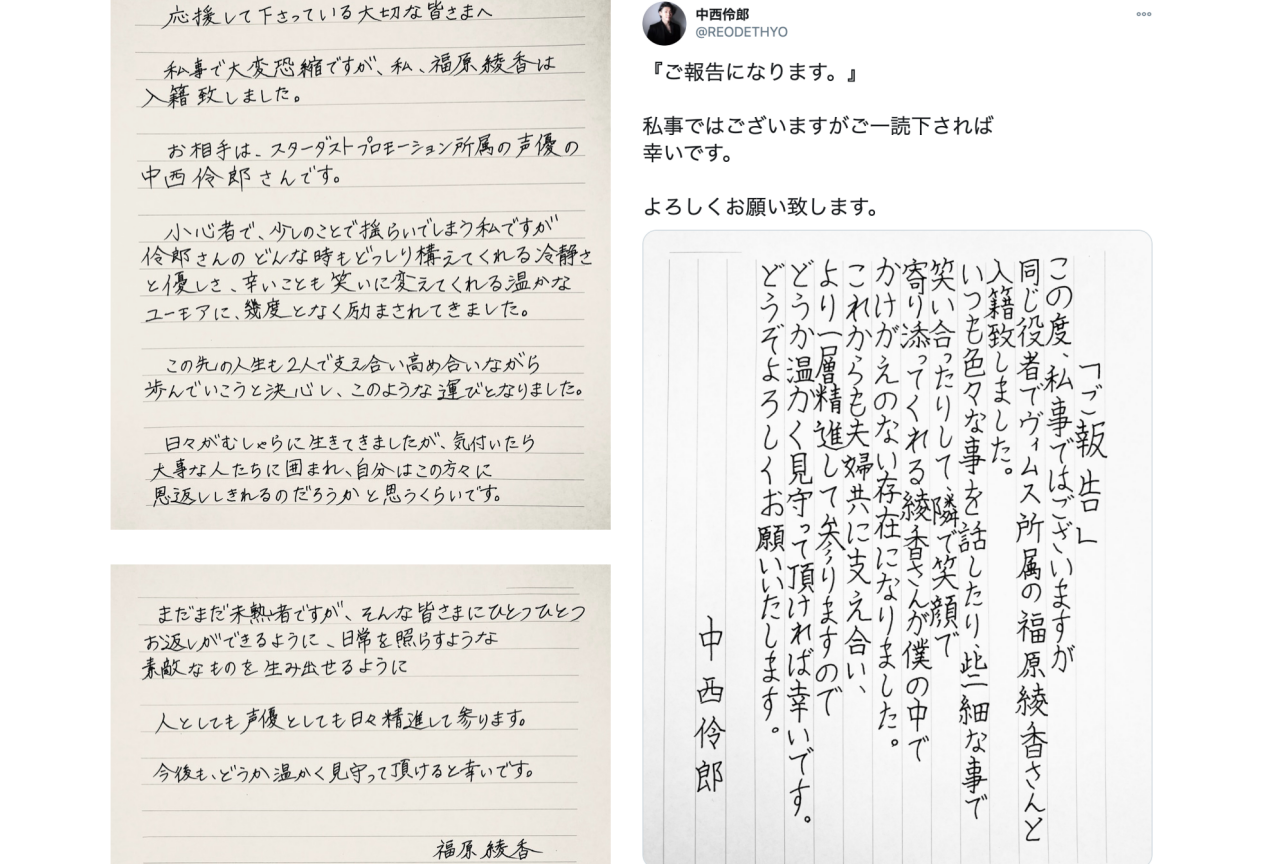 応援して下さっている大切な皆さまへ
私事で大変恐縮ですが、私、福原綾香は
入籍致しました。
お相手は、スターダストプロモーション所属の声優の
中西伶郎さんです。
小心者で、少しのことで揺らいでしまう私ですが
伶郎さんのどんな時もどっしり構えてくれる冷静さ
と優しさ、辛いことも笑いに変えてくれる温かな
ユーモアに、幾度となく励まされてきました。
この先の人生も2人で支え合い高め合いながら
歩んでいこうと決心し、このような運びとなりました。
日々がむしゃらに生きてきましたが、気付いたら
大事な人たちに囲まれ、自分はこの方々に
恩返ししきれるのだろうかと思うくらいです。
まだまだ未熟者ですが、そんな皆さまにひとつひとつ
お返しができるように、日常を照らすような
素敵なものを生み出せるように
人としても声優としても日々精進して参ります。
今後も、どうか温かく見守って頂けると幸いです。
福原綾香
中西伶郎
@REODETHYO
『ご報告になります。』
私事ではございますがご一読下されば
幸いです。
よろしくお願い致します。
「ご報告」
この度、私事ではございますが
同じ役者でヴィムス所属の福原綾香さんと
入籍致しました。
いつも色々な事を話したり、些細な事で
笑い合ったりして、隣で笑顔で
寄り添ってくれる綾香さんが僕の中で
かけがえのない存在になりました。
これからも夫婦共に支え合い、
より一層精進して参りますので
どうか温かく見守って頂ければ幸いです。
どうぞよろしくお願いいたします。
中西伶郎